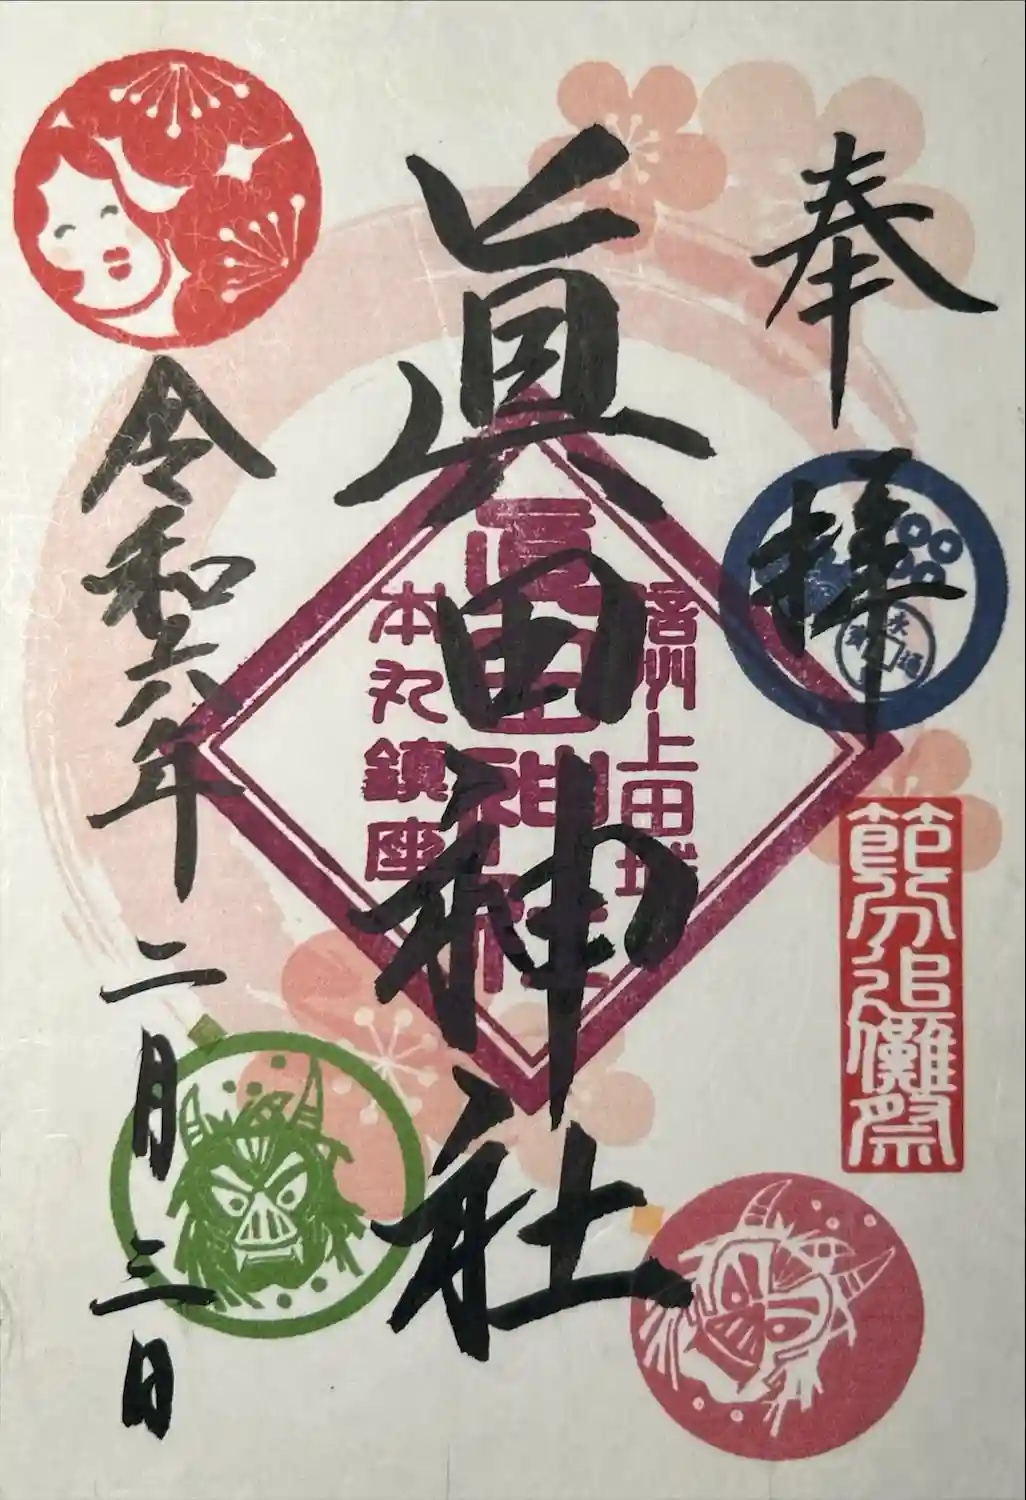 奉拝
節分追儺祭
眞田神社
信州上田城
眞田神社
本丸鎮座
令和六年二月三日